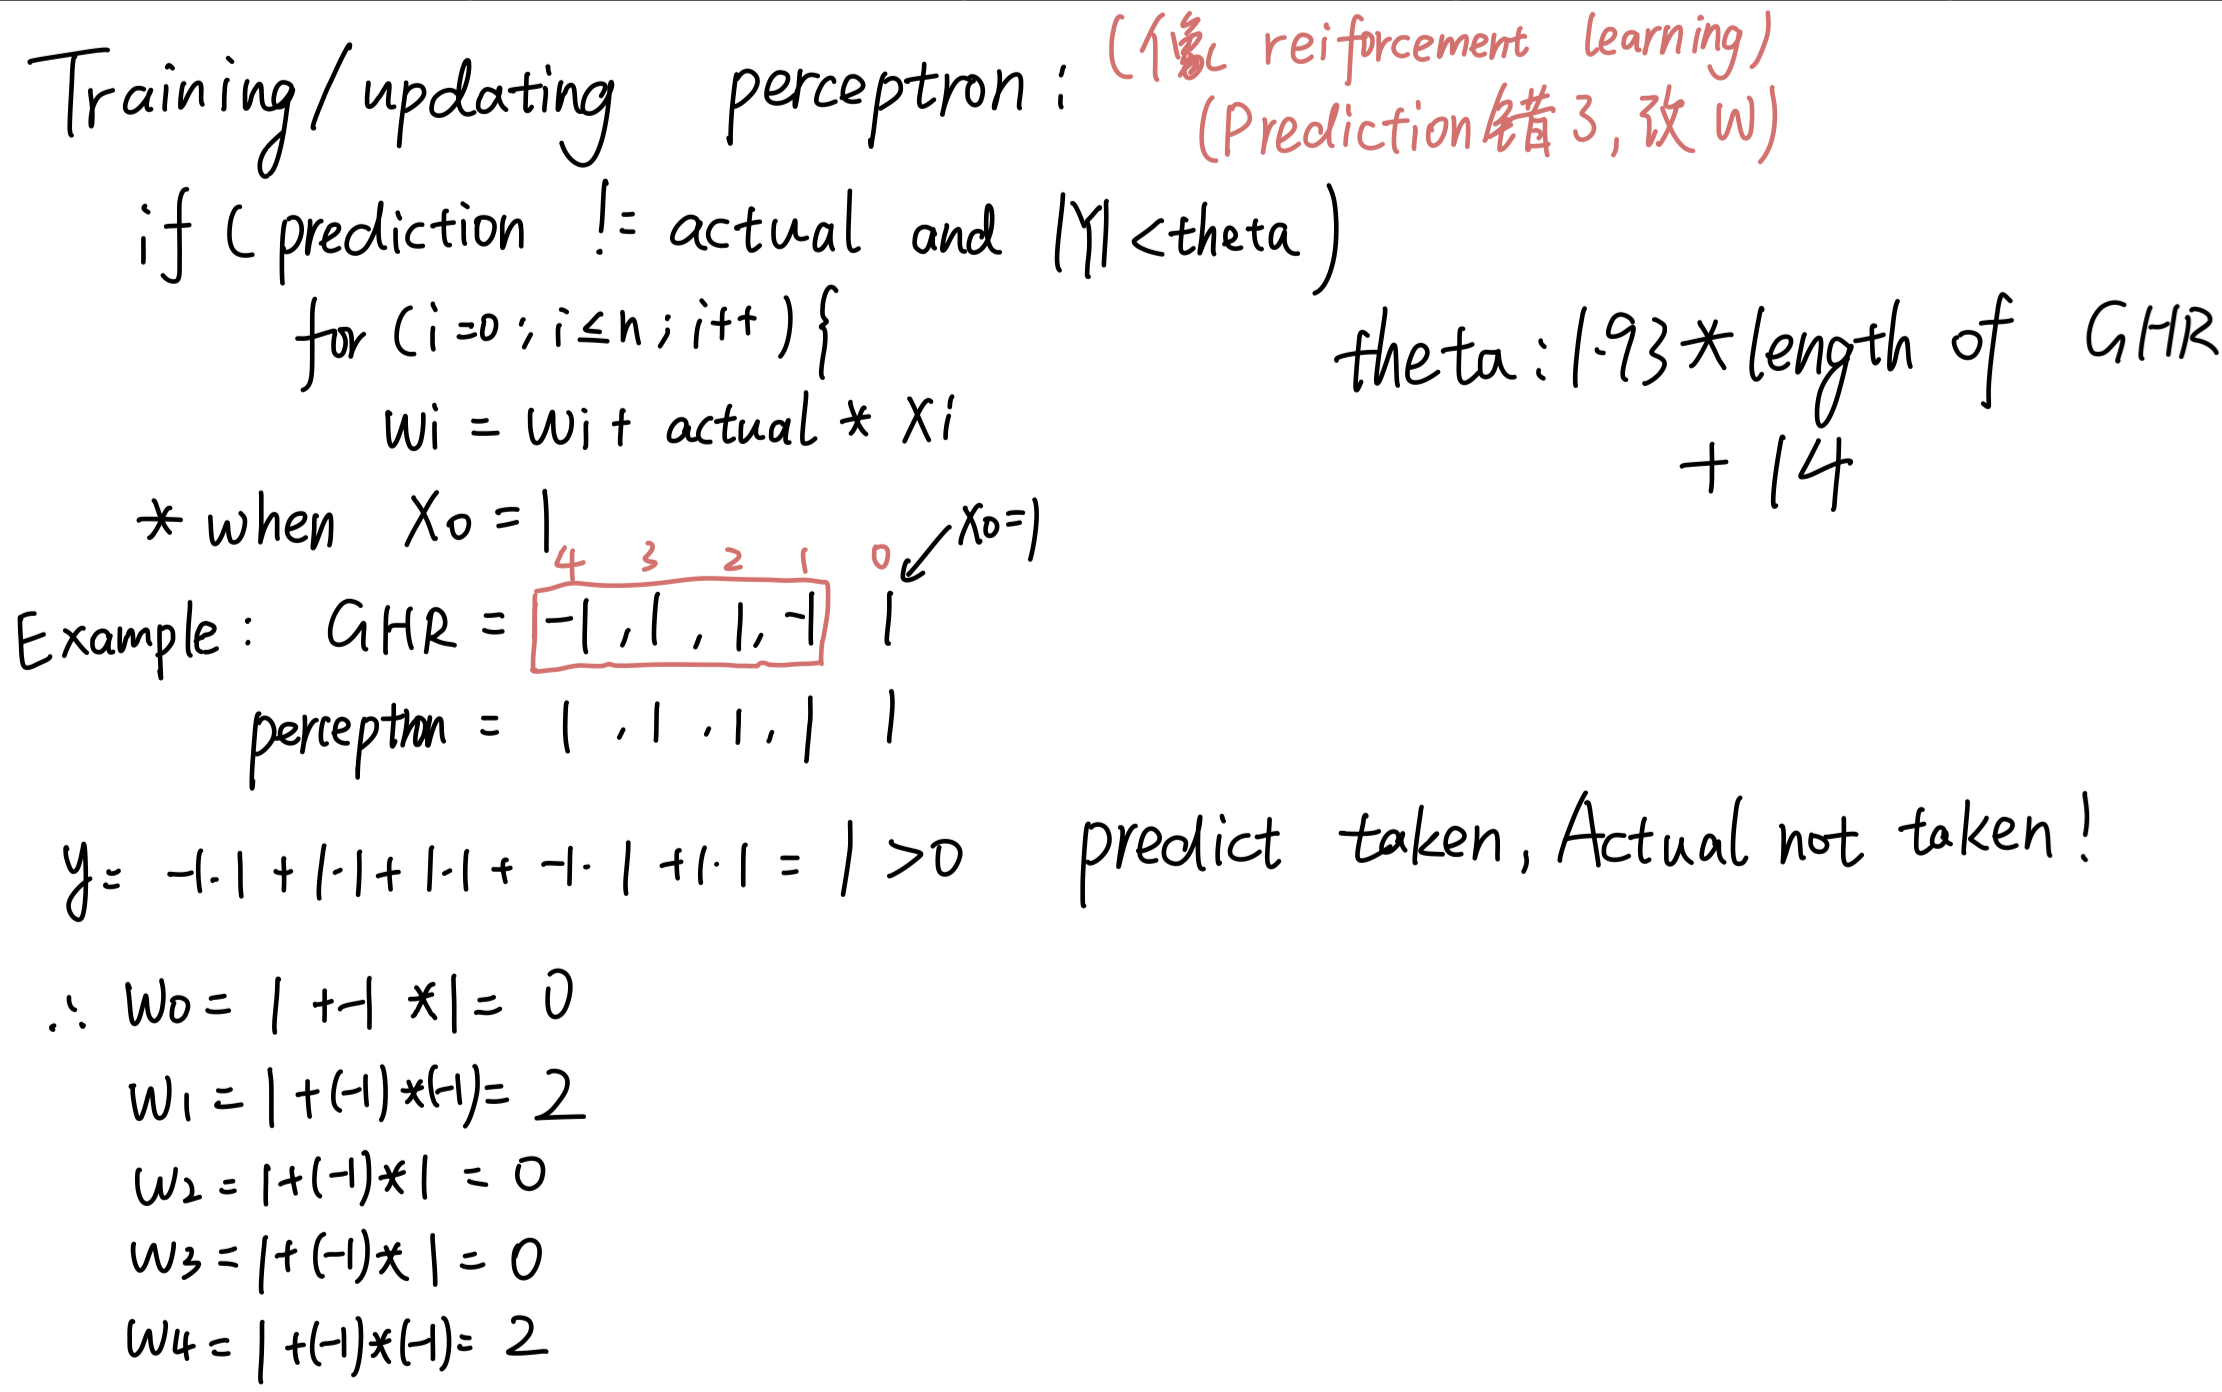 Training/updating perceptron : (像 reiforcement learning)
(Prediction 错了, 改 W)
if ( prediction != actual and |Y| <theta )
for ( i=0 ; i≤n ; i++ ) {
theta : 1.93 * length of GHR
+ 14
Wi = Wi + actual * Xi
* when X0 = 1
X0=1
4 3 2 1 0
Example : GHR = -1 , 1 , 1, -1 1
perceptron = 1 , 1 , 1 , 1 1
y= -1·1 + 1·1 + 1·1 + -1·1 +1·1 = 1 >0 predict taken, Actual not taken !
∴ W0 = 1 +-1 *1= 0
W1 = 1 +(-1) *(-1)= 2
W2 = 1+(-1)*1 = 0
W3 = 1+(-1)* 1 = 0
W4 = 1 +(-1)*(-1)= 2